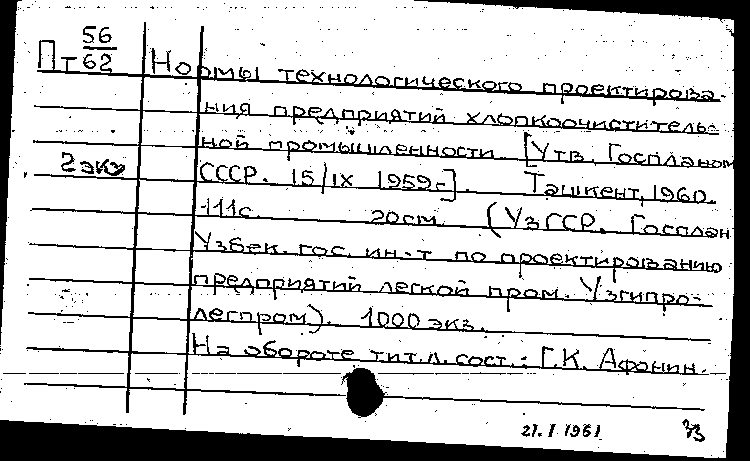 Пт 56/62 Нормы технологического проектирова-
ния предприятий хлопкоочиститель-
ной промышленности. [Утв. Госпланом
2 экз СССР. 15/IX 1959г.]. Ташкент, 1960.
111с. 20см. (УзССР. Госплан
Узбек. гос. ин-т по проектированию
предприятий легкой пром. Узгипро-
легпром). 1000 экз.
На обороте тит. л. сост.: Г.К. Афонин.
21.I 1961